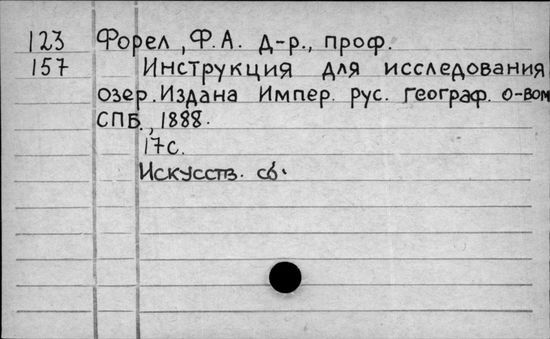 123 Форел, Ф.А. д-р., проф.
157 Инструкция для исследования
озер. Издана Импер. рус. географ. о-вом
СПБ., 1888.
17с.
Искусств. сб.